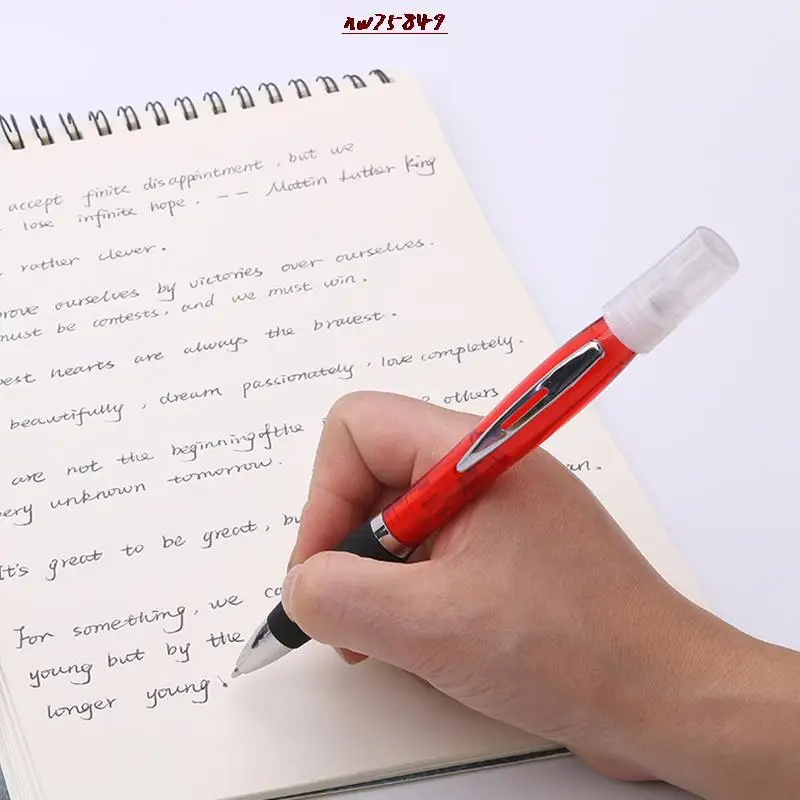 nw75849
accept finite disappointment, but we
lose infinite hope. -- Mattin Luther King
rather clever.
prove ourselves by victories over ourselves.
must be contests, and we must win.
best hearts are always the bravest.
beautifully, dream passionately, love completely.
are not the beginning of the others
very unknown tomorrow. an.
It's great to be great, bu
For something, we ca
young but by the
longer young